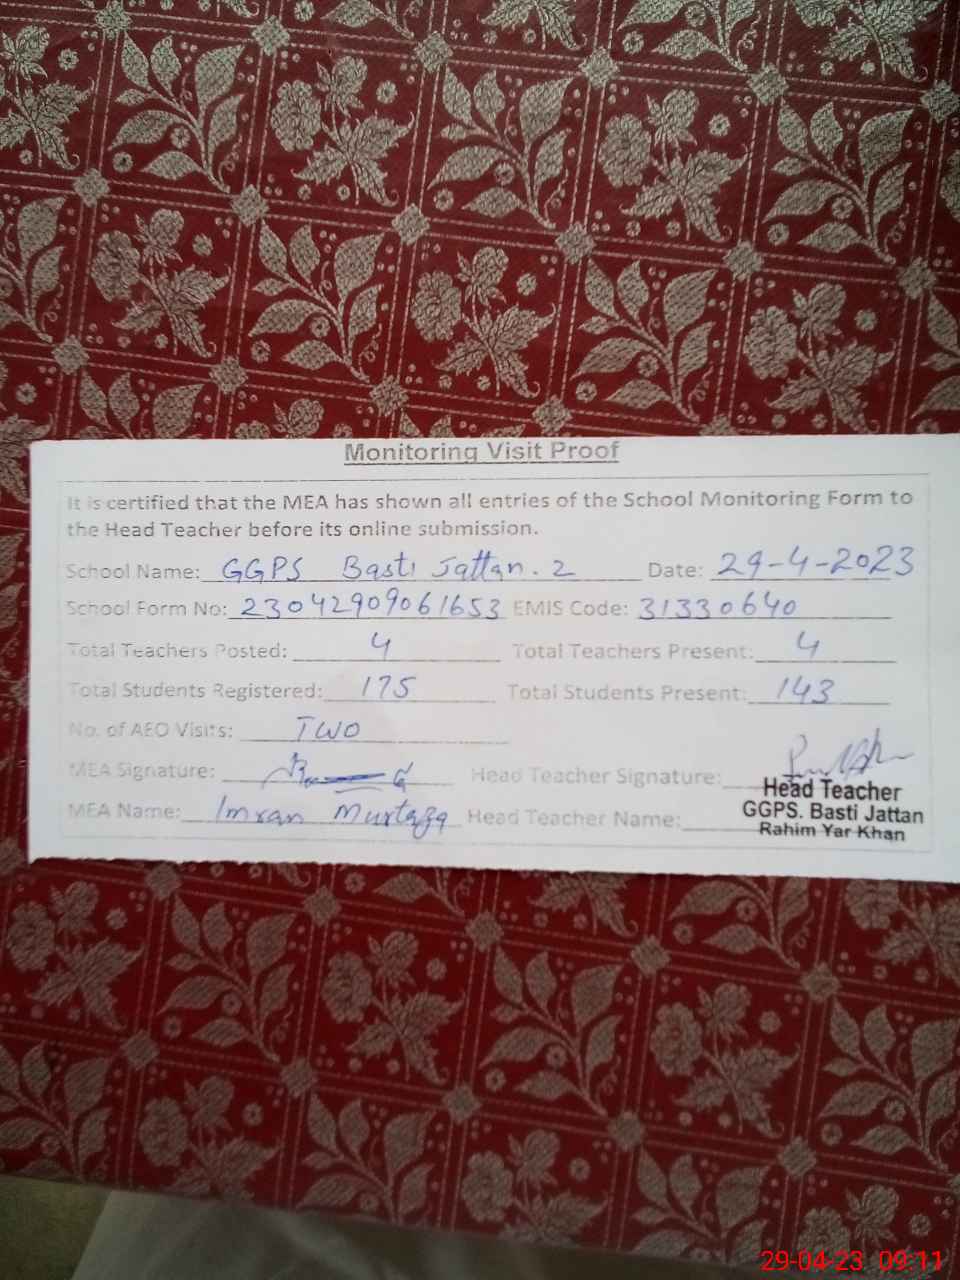 Monitoring Visit Proof
It is certified that the MEA has shown all entries of the School Monitoring Form to
the Head Teacher before its online submission.
School Name: GGPS Basti Jattan. 2 Date: 29-4-2023
School Form No: 23042909061653 EMIS Code: 31330640
Total Teachers Posted: 4 Total Teachers Present: 4
Total Students Registered: 175 Total Students Present: 143
No. of AEO Visits: Two
MEA Signature: Head Teacher Signature:
Head Teacher
MEA Name: Imran Murtaza Head Teacher Name:
GGPS. Basti Jattan
Rahim Yar Khan
29-04-23 09:11